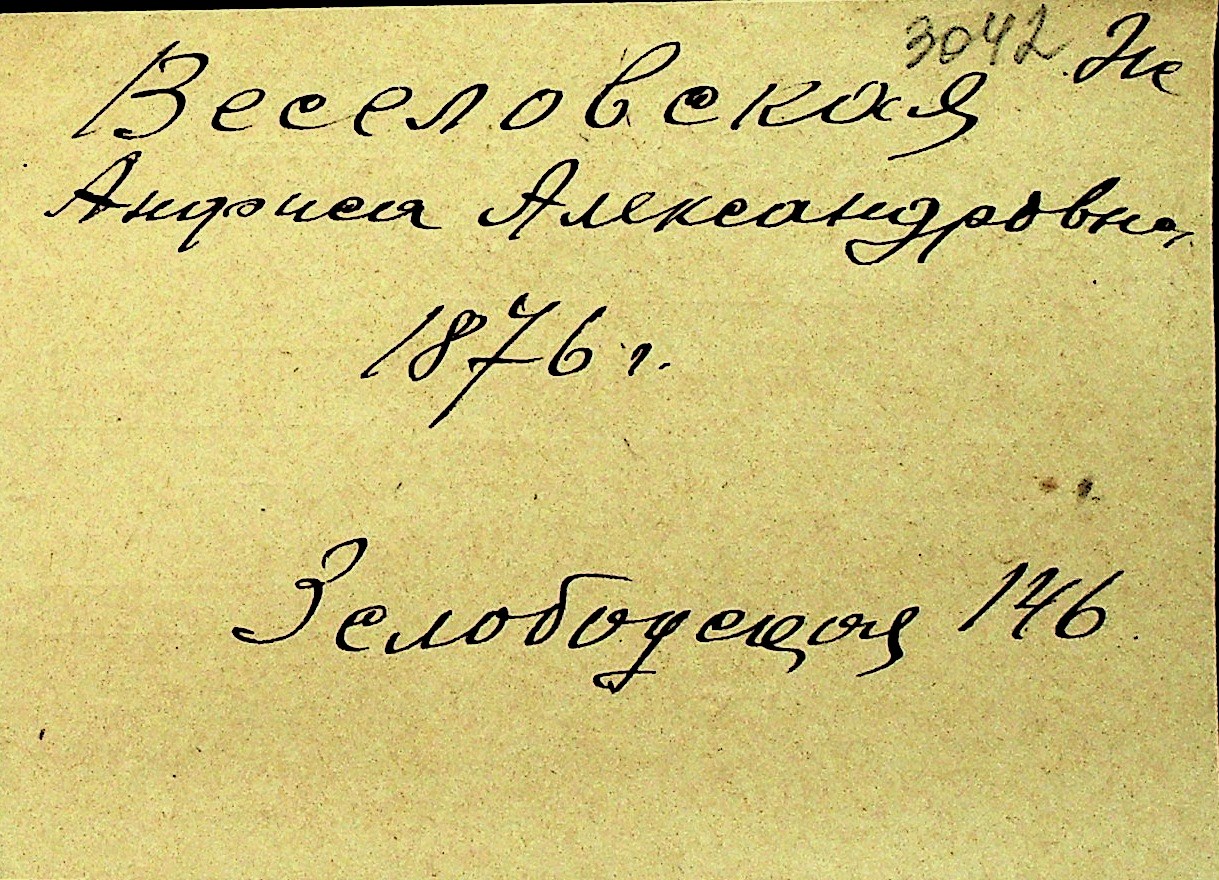 3042 Же
Веселовская
Анфиса Александровна
1876 г.
3 слободская 146